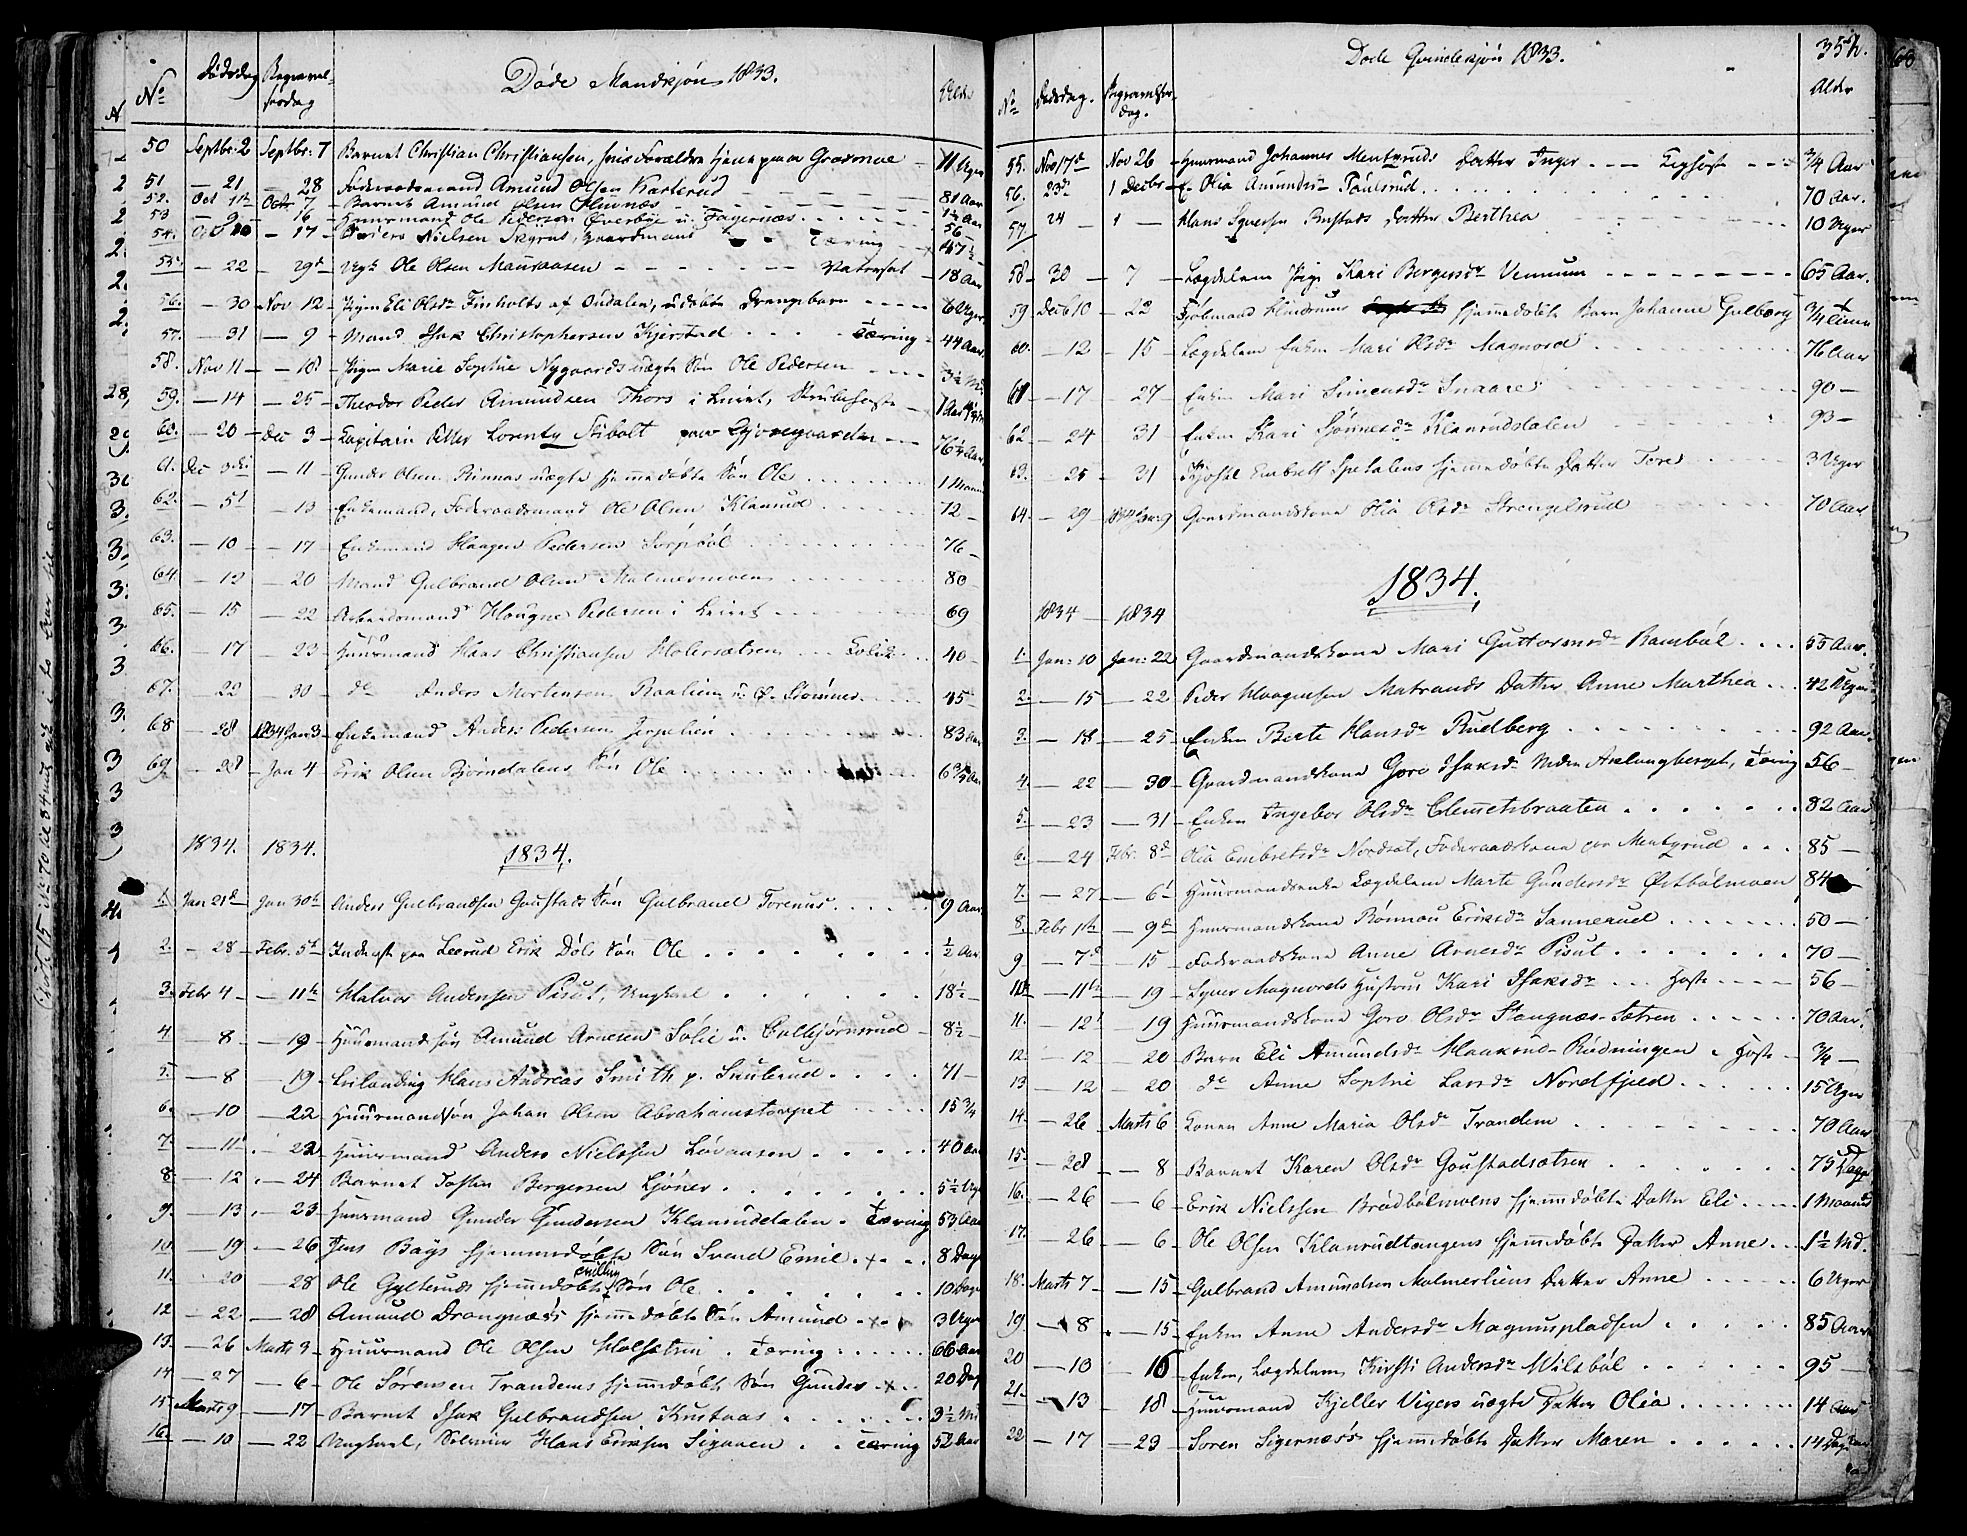 No
Dødsdag
Begravelsesdag
Døde Mandkjøn 1833.
Alder
50 Septbr: 2 Septbr: 7 Barnet Christian Christiansen, hvis Forældre tjene paa Grasmue - 11 Uger
51 - 21 - 28 Føderaadsmand Amund Olsen Karterud 81 Aar
52. Oct 1ste Octr 7 Barnet Amund Olsen 1½ Aar
53 - 9 - 16 Huusmand Ole Pedersen Øverbye u. Fagernæs 56 -
54. Oct 10 - 17 Nielsen Gaardmand Tæring 47½
55. - 22 - 29de Ungk. Ole Olsen Mauraasen Vatersot - 18 Aar
56. - 30 - Nov 12 - Pigen Eli Olsdr Finholts af Oudalen, udøbte Drengebarn 6 Uger
57. - 31 - 9 - Mand Isak Christophersen Kjerstad Tæring - 44 Aar
58. Nov 11 - 18 - Pigen Marie Sophie Nygaards uægte Søn Ole Pedersen 3½ Md.
59. - 14 - 25 - Theodor Peder Amundsen Thors i Leiret, 1 Aar
60. - 20 - Dec 3 - Capitain Peter Lorentz Stibolt paa Gjøsegaarden 76¼ Aar
61. Dec - 11 - Gunder Olsen Rinnas uægte hjemmedøbte Søn Ole 1 Maaned
62. - 5te - 13 - Enkemand, Føderaadsmand Ole Olsen Klanrud 72 -
63. - 10 - 17 - Enkemand Haagen Pedersen 76 -
64. - 12 - 20 - Mand Gulbrand Olsen Malmermoen 80
65. - 15 - 22 - Arbeidsmand Haagne Pedersen i Leiret 69
66. - 17 - 23 - Huusmand Haas Christiansen Holersætren Colik 40 -
67. - 22 - 30 - do Anders Mortensen Raalien u. Ø. Stømner 45 -
68 - 28 1834 Jan: 3 - Enkemand Anders Pedersen Jerpelien 83 Aar
69. - 28 - Jan 4 Erik Olsen Bjørndalens Søn Ole 6¾ Aar
1834. 1834.
1834.
1. Jan 21de - Jan 30te Anders Gulbrandsen Goustads Søn Gulbrand Forenus 9 Aar
2. - 28 - Febr. 5te - Inderst paa Leerud Erik Døls Søn Ole ½ Aar
3. Febr 4 - 11te Halvor Andersen Pisut, Ungkarl 18½ -
4. - 8 - 19 - Huusmandssøn Amund Arnesen Solie u. Colbjørnsrud - 8½ -
5. - 8 - 19 - Hans Andreas Smith p. Snuterud 71 -
6. - 10 - 22 - Huusmandssøn Johan Olsen Abrahamstorpet 15¾
7. - 11te - 22 - Huusmand Anders Nielssen Løvaasen 40 Aar
8 - 12 - 24 Barnet Josten Bergersen Ljøner 5½ Uge
9. - 13 - 23 - Huusmand Gunder Gundersen Klanrudtalen. Tæring 53 Aar
10. - 19 - 26 Jens Bays hjemmedøbte Søn Svend Emil 8 Dage
11. - 20 - 28 Ole Gylterudds hjemmedøbte Tvilling Søn Ole 10 Dage
12 - 22 - 28 Amund Drangnæss hjemmedøbte Søn Amund 3 Uger
13. - 26 Marts 3 - Huusmand Ole Olsen Holsætrin. Tæring 66 Aar
14 - 27 - 6 - Ole Sørensen Trandems hjemmedøbte Søn Gunder 20 Dage
15 - Marts 9 - 17 - Barnet Isak Gulbrandsen Kustaas 3½ Md
16. - 10 - 22 Ungkarl, Hans Eriksen Sigaaen Tæring 52 Aar
No
Dødsdag.
Begravelsesdag.
Døde Qvindekjøn 1833.
357.
Alder
55. Nov 17de Nov 26 - Huusmand Johannes Mentzruds Datter Inger - - - Kighoste ¾ Aar
56. 23de 1 Decbr - E. Olia Amundsdr Poulsrud 70 Aar.
57. 24 - 1 - Hans Syversen Bustads Datter Berthea 10 Uger
58 - 30 - 7 - Lægdelem Pige Kari Bergersdr Vennum 65 Aar.
59 Decb 10 - 22 hjemmedøbte Barn Johanne Gulborg ¾ Time
60. - 12 - 15 - Lægdelem Enken Mari Olsdr Magnord 76 Aar
61 - 17 - 27 - Enken Mari Simensdr Snaare 90 -
62 - 24 31 - Enken Kari Sønnesdr Klanrudstalen 93 -
63. - 25 - 31 Embrett Spetalens hjemmedøbte Datter Tore 3 Uger
64. - 29 1834 Jan: 9 Gaardmandskone Olia Olsdr Strengelsrud 70 Aar
1834.
1834 - 1834
1. Jan: 10 Jan: 22 Gaardmandskone Mari Guttormsdr Rambøl 55 Aar.
2. - 15 - 22 Peder Haagensen Matrands Datter Anne Marthea 42 Uger
3. - 18 - 25 - Enken Berte Hansdr Rudberg 92 Aar.
4. - 22 - 30 Gaardmandskone Goro Isaksdr Nedre Aslongberget, Tæring 56 -
5. - 23 - 31 - Enken Ingebor Olsdr Clemetsbraaten 82 Aar
6. - 24 Febr. 8de Olia Embretsdr Nordsæt, Føderaadskone paa Mentzrud 85 -
7. - 27 - 6te Huusmandsenke Lægdelem Marte Gundersdr Østbølmoen 84 -
8. Febr 1ste - 9de Huusmandskone Rønnau Eriksdr Sannerud 50 -
9 - 7de - 15 Føderaadskone Anne Arnesdr Pisut 70 -
10. - 11te - 19 Syver Magnords Hustrue Kari Isaksdr Hoste 56 -
11. - 12te 19 Huusmandskone Goro Olsdr Stangnæs-Sætren 70 Aar.
12. - 12 20 Barn Eli Amundsdr Haakrud-Rødningen - Hoste - ¾ -
13 - 12 20 do Anne Sophie Larsdr Nordfjeld 15 Uger
14. - 26 Marts 6 Konen Anne Maria Olsdr Trandem 70 Aar
15. - 28 - 8 Barnet Karen Olsdr Goustadsætren 75 Dage
16. - 26 - 6 - Erik Nielssen Brødbølmoens hjemmedøbte Datter Eli - 1 Maaned
17. - 26 - 6 - Ole Olsen Klanrudtangens hjemmedøbte Datter Anne 1½ Md.
18. Marts 7 - 15 Gulbrand Amundsen Malmerliens Datter Anne 6 Uger
19 - 8 - 15 Enken Anne Andersdr Magnuspladsen 85 Aar
20 - 10 16 Enken, Lægdelem Kirsti Andersdr Milsbøl 95 -
21. - 13 18 Huusmand Kjeller Vigers uægte Datter Olia 14 Aar
22 - 17 - 23 Søren Sigernæss hjemmedøbte Datter Maren 14 Dage